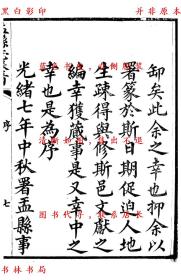 黑白影印 并非原本
卸矣此余之幸也抑余以
署篆於斯期促迫人地
生疎得與修斯邑文獻之
編幸獲蕆事是又幸中之
幸也是為序
光緒七年中秋署孟縣事
序
七
书林书局